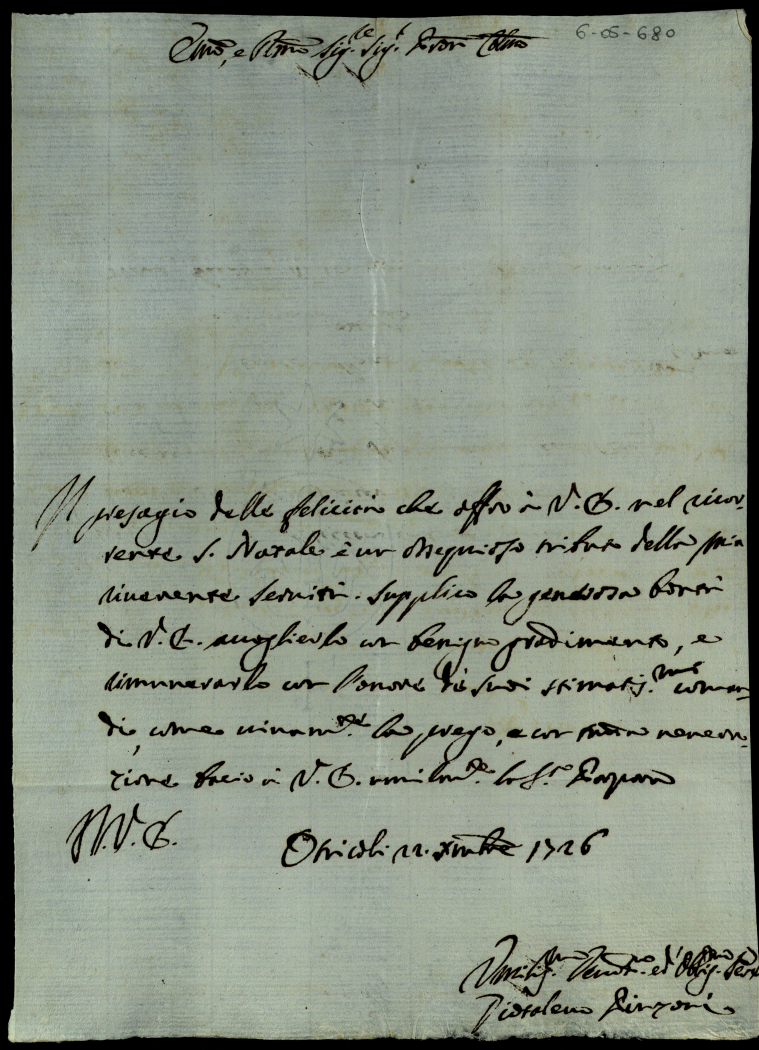 6-05-680
Emo, e Rmo Sig.re Sig.r Pron Colmo
Il presagio delle felicità che offro à V. E. nel ricor-
rente S. Natale è un ossequioso tributo della mia
riverente servitù. Supplico la generosa bontà
di V. E. accoglierlo con benigno gradimento, e
rimunerarlo con l'onore de suoi stimatis.mi coman-
di, come vivam.te la prego, e con tutta venera-
zione bacio à V. E. umilm.te la S.ra Porpora
D. V. E.
Otricoli 22. Xmbre 1726
Umilis.mo Devot.mo ed Oblig.mo Serv